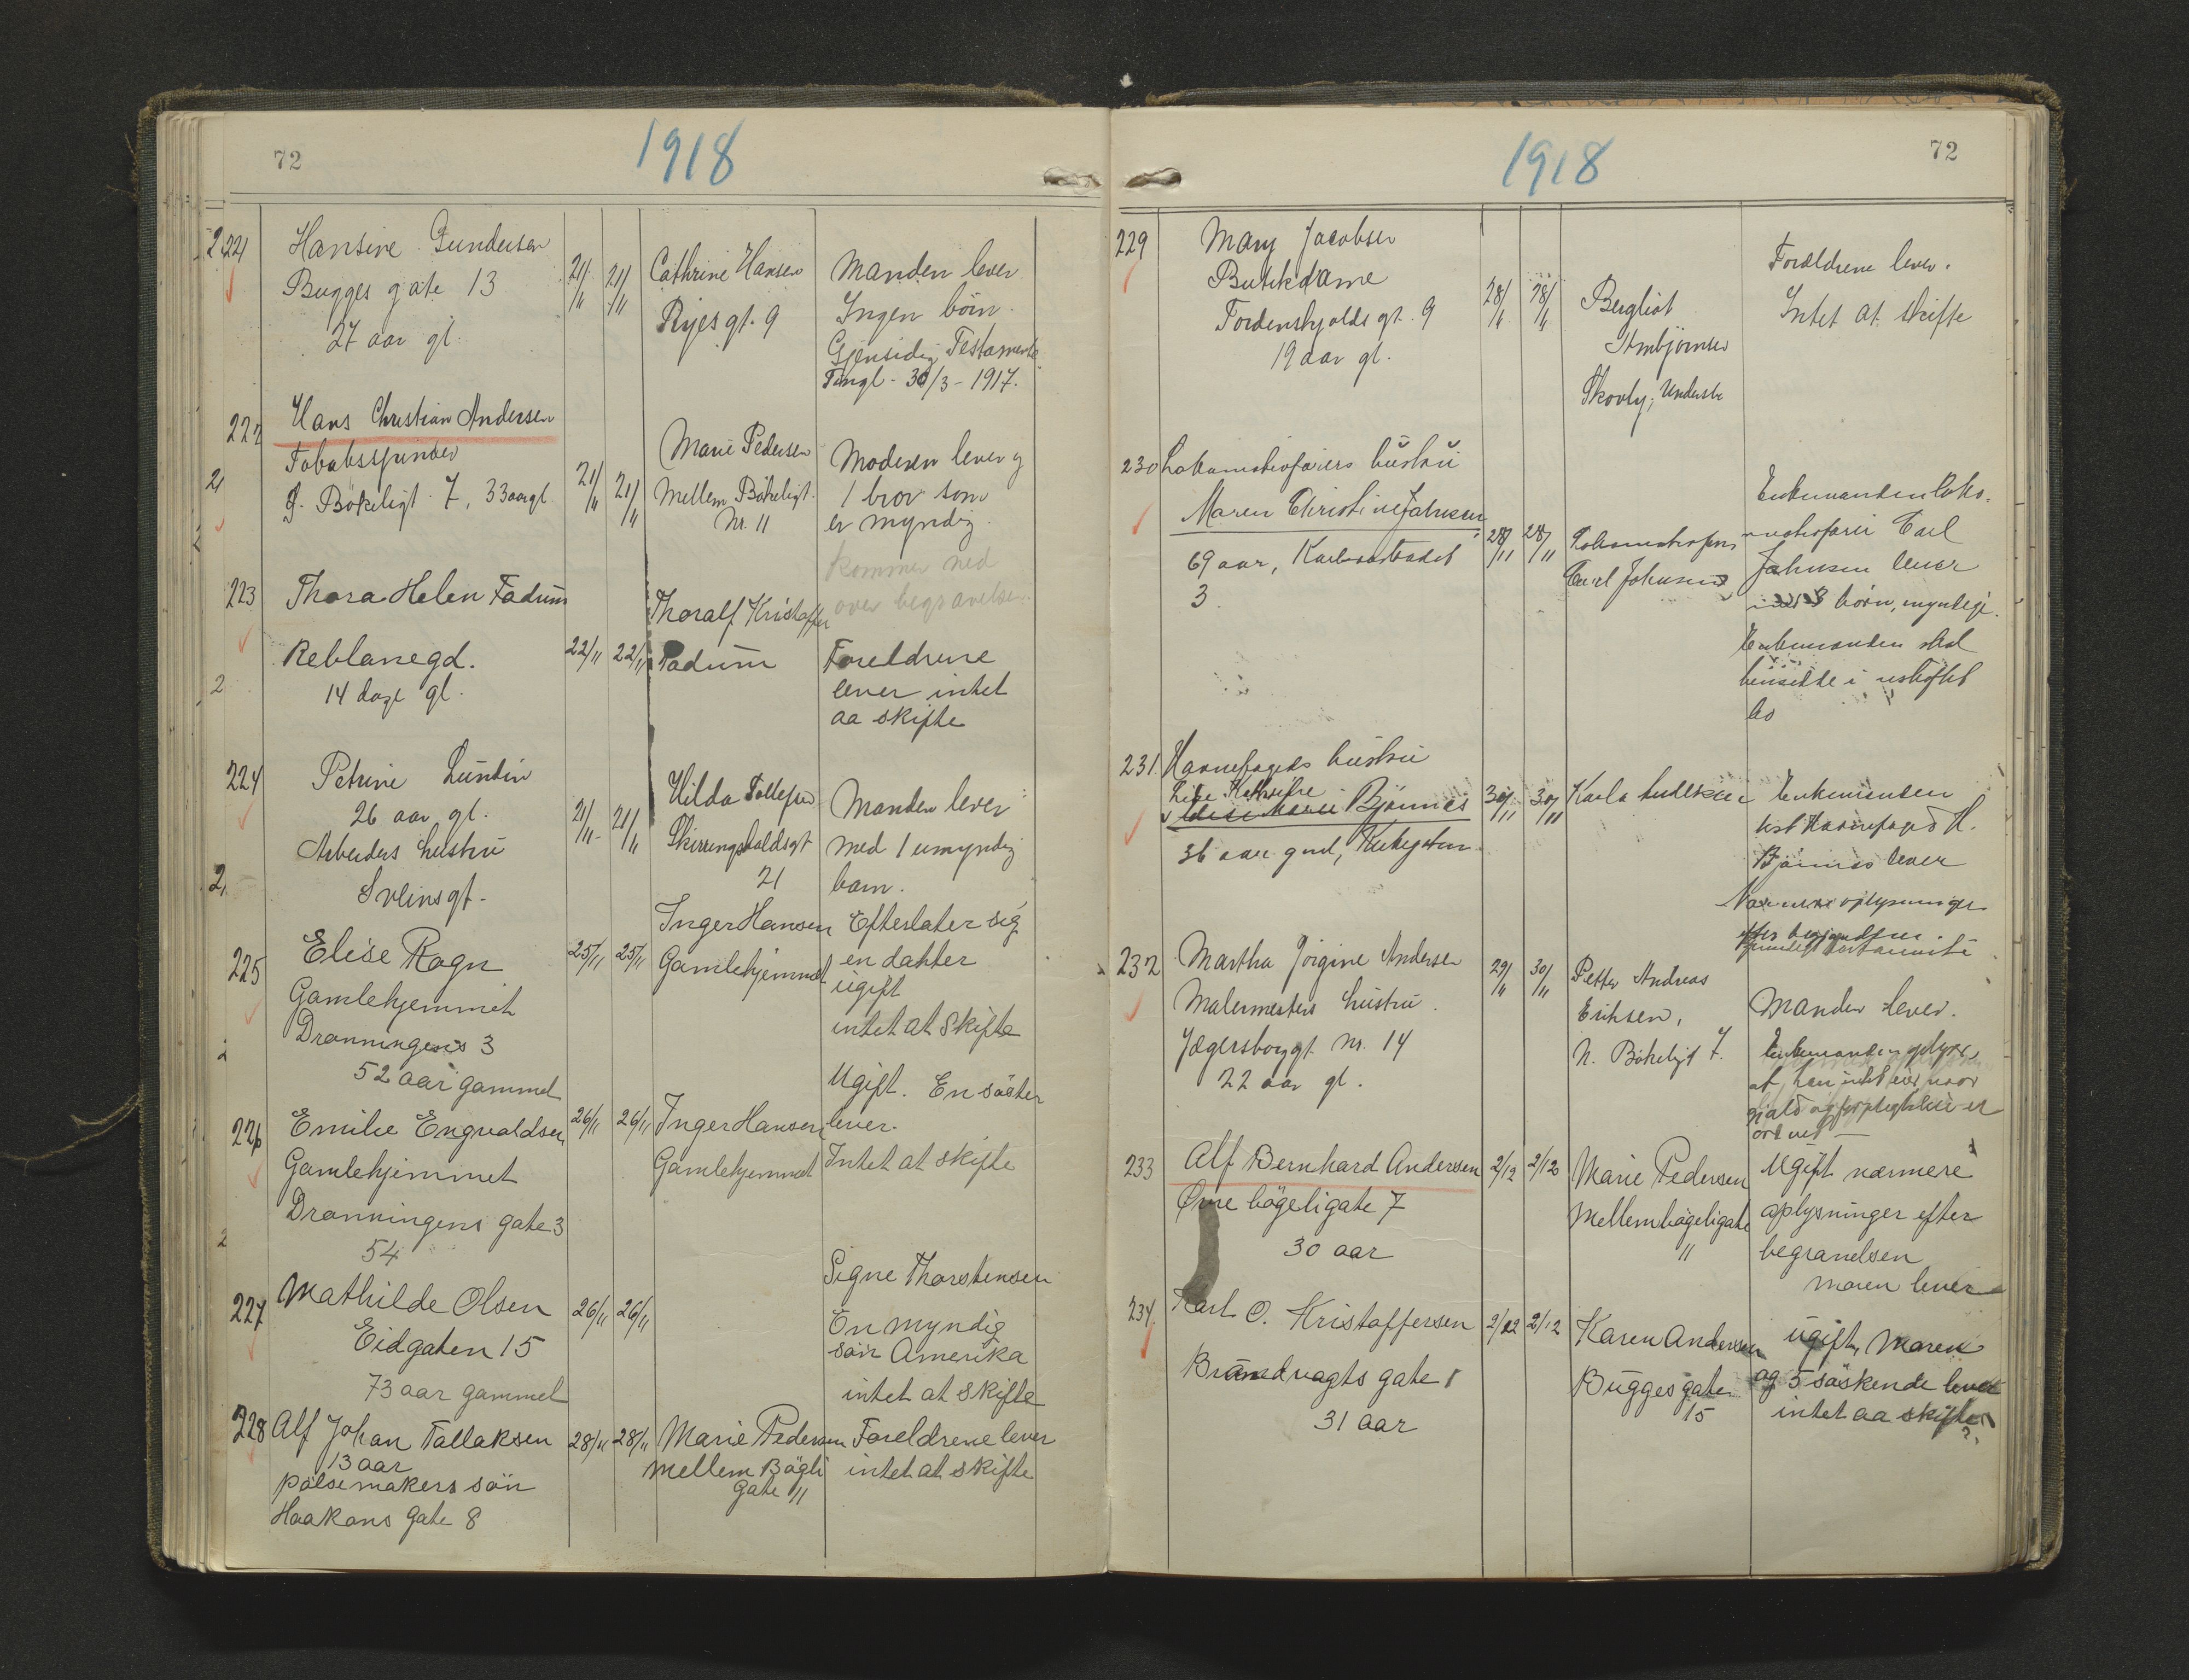 72
1918
221
Hansine Gundersen
Bugges gate 13
27 aar gl.
21/11 21/11
Cathrine Hansen
Ryesgt. 9
Manden lever
Ingen börn.
Gjensidig Testamente
Tingl. 30/3-1917.
222
Hans Christian Andersen
Tobaksspinder
Ø. Bökeligt. 7, 33 aar gl.
21/11 21/11
Marie Pedersen
Mellem Bökeligt.
Nr. 11
Moderen lever og
1 bror som
er myndig.
kommer ned
over begravelse.
223
Thora Helen Fadum
Reblanegd.
14 dage gl.
22/11 22/11
Thoralf Kristoffer
Fadum
Foreldrene
lever intet
aa skifte
224
Petrine Lundin
26 aar gl.
Arbeiders hustru
Sveinsgt.
21/11 21/11
Hilda Tollefsen
Skiringshaldsgt
21
Manden lever
med 1 umyndig
barn.
225
Elise Rogn
Gamlehjemmet
Dronningens 3
52 aar gammel
25/11 25/11
Inger Hansen
Gamlehjemmet
Efterlater sig
en dakter
ugift
intet at skifte
226
Emilie Engvaldsen
Gamlehjemmet
Dronningens gate 3
54
26/11 26/11
Inger Hansen
Gamlehjemmet
Ugift. En söster
lever.
Intet at skifte
227
Mathilde Olsen
Eidgaten 15
73 aar gammel
26/11 26/11
Signe Thorstensen
En myndig
sön Amerika
intet at skifte
228
Alf Johan Tallaksen
13 aar
pölsemakers sön
Haakons gate 8
28/11 28/11
Marie Pedersen
Mellem Bögli
Gate 11
Foreldrene lever
intet at skifte
72
1918
229
Mary Jacobsen
Butikdame
Tordenskjolds gt. 9
19 aar gl.
28/11 28/11
Bergliot
Arnbjörnsen
Skovly,
Foreldrene lever.
Intet at skifte
230
Lokomotivförers hustru
Maren Christine Johnsen
69 aar,
3
28/11 28/11
Lokomotivförer
Carl Johnsen
Enkemanden loko-
motivförer Carl
Johnsen lever
3 börn, myndige.
Enkemanden skal
i uskiftet
bo
231
Havnefogeds hustru
Bjönnes
36 aar gml,
30/11 30/11
Karla
Enkemanden
Havnefoged H.
Bjönnes lever
Nærmere oplysninger
efter begravelsen.
232
Martha Jörgine Andersen
Malermesters hustru.
Jægersborggt. Nr. 14
22 aar gl.
29/11 30/11
Petter Andreas
Eriksen,
N. Bökeligt 7.
Manden lever.
Enkemanden oplyser
at han intet eier
gjæld
233
Alf Bernhard Anderssen
Övre bögeligate 7
30 aar
2/12 2/12
Marie Pedersen
Mellembögeligate
11
Ugift nærmere
oplysninger efter
begravelsen
moren lever
234.
Karl O. Kristoffersen
Brandvagts gate 1
31 aar
2/12 2/12
Karen Andersen
Bugges gate
15
Ugift, Moren
og 5 söskende lever
intet aa skifte